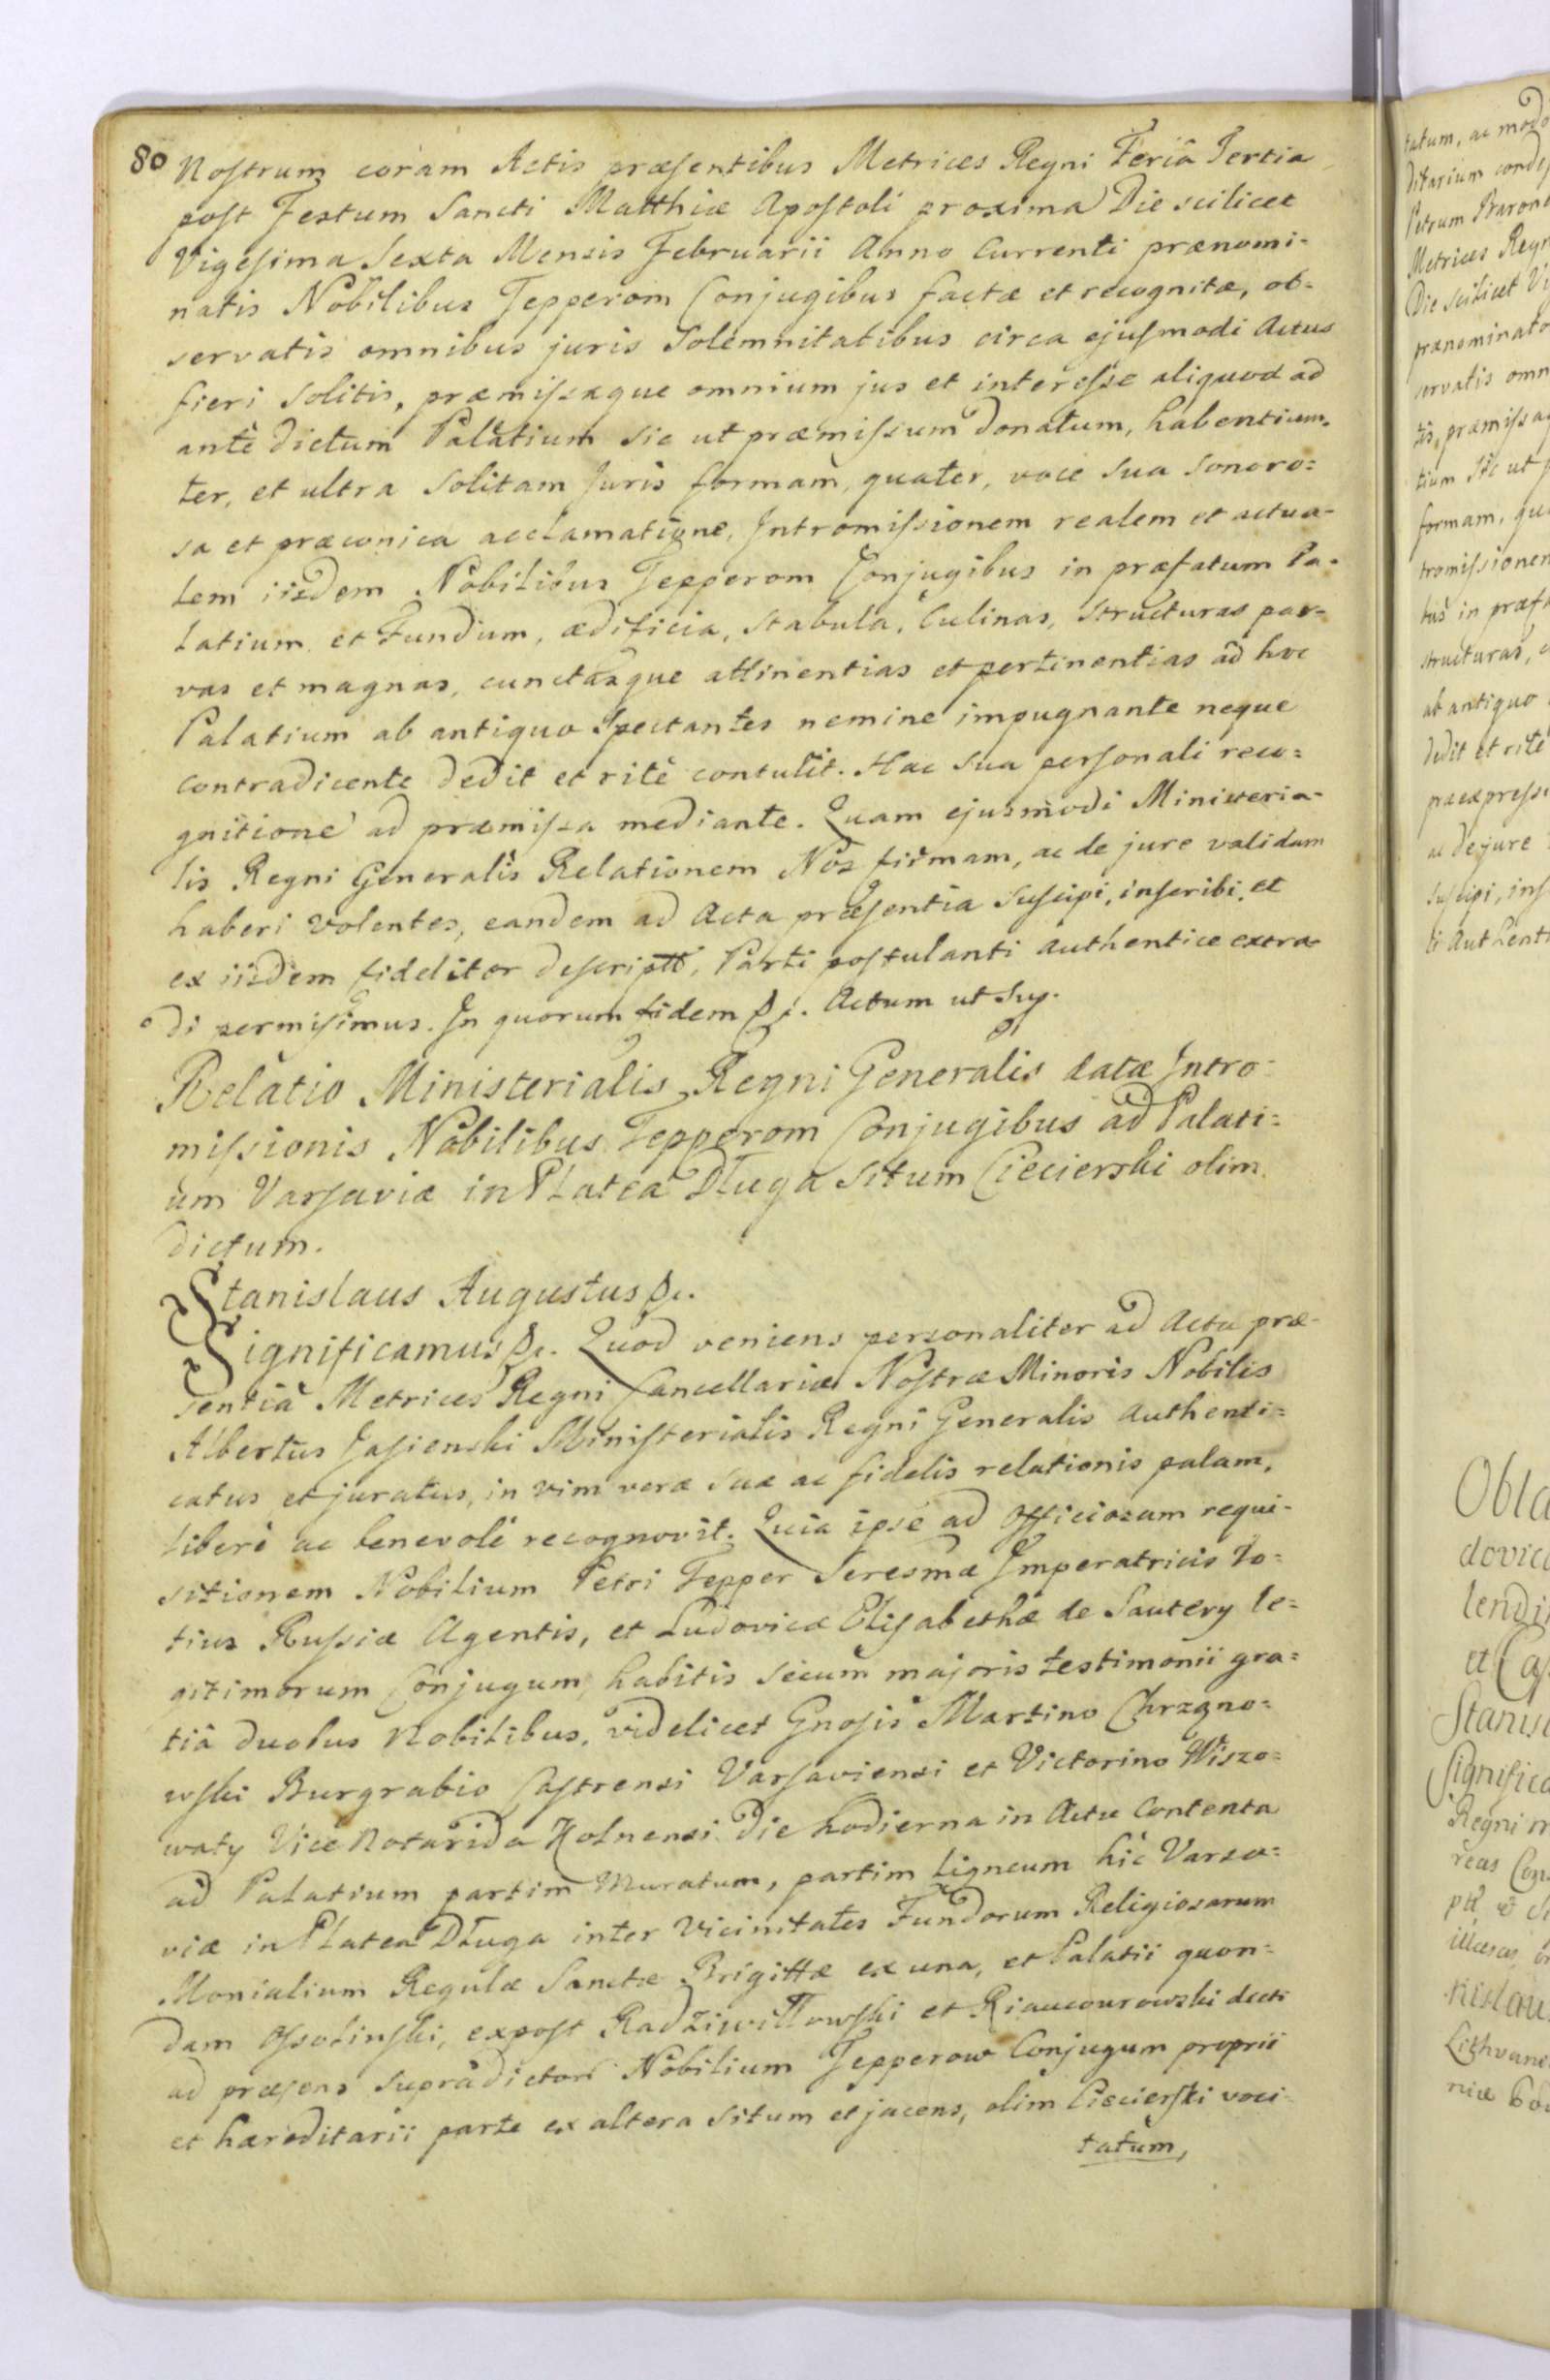 80
Nostrum coram Actis præsentibus Metrices Regni Feria Tertia
post Festum Sancti Matthiæ Apostoli proxima Die scilicet
Vigesima Sexta Mensis Februarii Anno Currenti prænomi-
natis Nobilibus Tepperom Conjugibus factæ et recognitæ, ob-
servatis omnibus juris Solemnitatibus circa ejusmodi Actus
fieri solitis, præmissaque omnium jus et interesse aliquod ad
antè dictum Palatium sic ut præmissum donatum, habentium,
ter, et ultra Solitam Juris formam, quater, voce sua sonoro=
sa et præconica acclamatione, Intromissionem realem et actua-
lem iisdem Nobilibus Tepperom Conjugibus in præfatum Pa-
latium et Fundum, ædificia, stabula, Culinas, structuras par-
vas et magnas, cunctasque attinentias et pertinentias ad hoc
Palatium ab antiquo Spectantes nemine impugnante neque
contradicente dedit et ritè contulit. Hac sua personali reco=
gnitione ad præmissa mediante. Quam ejusmodi Ministeria-
lis Regni Generalis Relationem Nos firmam, ac de jure validam
haberi volentes, eandem ad Acta præsentia suscipi, inscribi, et
ex iisdem fideliter descriptt, Parti postulanti authentice extra-
di permisimus. In quorum fidem &c. Actum ut Sup.
Relatio Ministerialis Regni Generalis datæ Intro-
missionis Nobilibus Tepperom Conjugibus ad Palati=
um Varsaviæ in Platea Długa Situm Ciecierski olim
dictum.
Stanislaus Augustus &c.
Significamus &c. Quod veniens personaliter ad Acta præ-
sentia Metrices Regni Cancellariæ Nostræ Minoris Nobilis
Albertus Jasienski Ministerialis Regni Generalis authenti=
catus et juratus, in vim veræ suæ ac fidelis relationis palam,
liberè ac benevolè recognovit. Quia ipse ad officiosam requi-
sitionem Nobilium Petri Tepper Seresmæ Imperatricis To=
tius Russiæ Agentis, et Ludovicæ Elisabethæ de Sautery le=
gitimorum Conjugum, habitis secum majoris testimonii gra=
tiâ duobus Nobilibus, videlicet Gnosis Martino Chrzano=
wski Burgrabio Castrensi Varsaviensi et Victorino Wiszo=
waty Vice Die hodierna in Actu Contenta
ad Palatium partim Muratum, partim ligneum hic Varsa=
viæ in Platea Długa inter Vicinitates Fundorum Religiosarum
Monialium Regulæ Sanctæ Brigittæ ex una, et Palatii quon=
dam Ossolinski, expost Radziwiłłowski et Riaucourowski dicti
ad præsens Nobilium Tepperow Conjugum proprii
et hæreditarii parte ex altera situm et jacens, olim Ciecierski voci-
tatum,
tatum, ac modo
ditarium
Petrum Baron
Metrices Regn
Die scilicet Vi
prænominato
servatis omn
tis, præmissa
tium sic ut p
formam, qu
tromissionem
in præf
structuras,
ab antiquo
dedit et ritè
præexpress
ac de jure
suscipi, ins
ti authent
Obla
dovic
lendi
et Cas
Stanis
Significa
Regni m
reas Con
illæsas
nislau
Lithvan